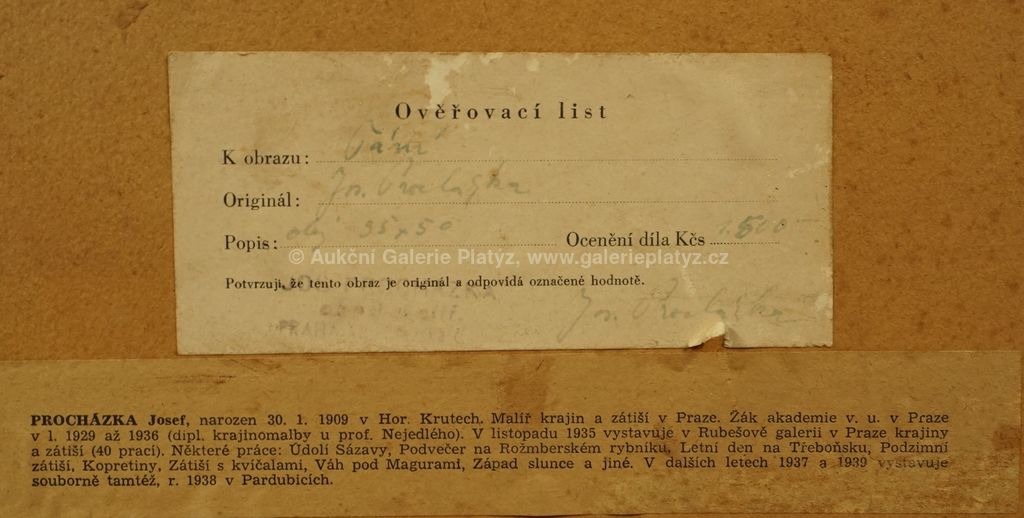 Ověřovací list
K obrazu:
Originál: Jos. Procházka
Popis: olej 35 x 50 Ocenění díla Kčs 1.500
© Aukční Galerie Platýz, www.galerieplatyz.cz
Potvrzuji, že tento obraz je originál a odpovídá označené hodnotě.
Jos. Procházka
PROCHÁZKA Josef, narozen 30. 1. 1909 v Hor. Krutech. Malíř krajin a zátiší v Praze. Žák akademie v. u. v Praze
v l. 1929 až 1936 (dipl. krajinomalby u prof. Nejedlého). V listopadu 1935 vystavuje v Rubešově galerii v Praze krajiny
a zátiší (40 prací). Některé práce: Údolí Sázavy, Podvečer na Rožmberském rybníku, Letní den na Třeboňsku, Podzimní
zátiší, Kopretiny, Zátiší s kvíčalami, Váh pod Magurami, Západ slunce a jiné. V dalších letech 1937 a 1939 vystavuje
souborně tamtéž, r. 1938 v Pardubicích.